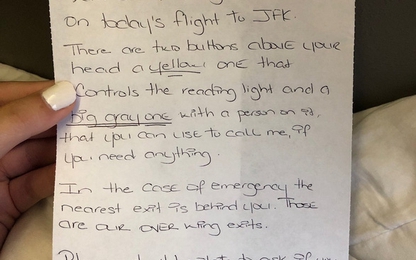 on today's flight to JFK.
There are two buttons above your
head a yellow one that
controls the reading light and a
big gray one with a person on it,
that you can use to call me, if
you need anything.
In the case of emergency the
nearest exit is behind you. Those
are our over wing exits.